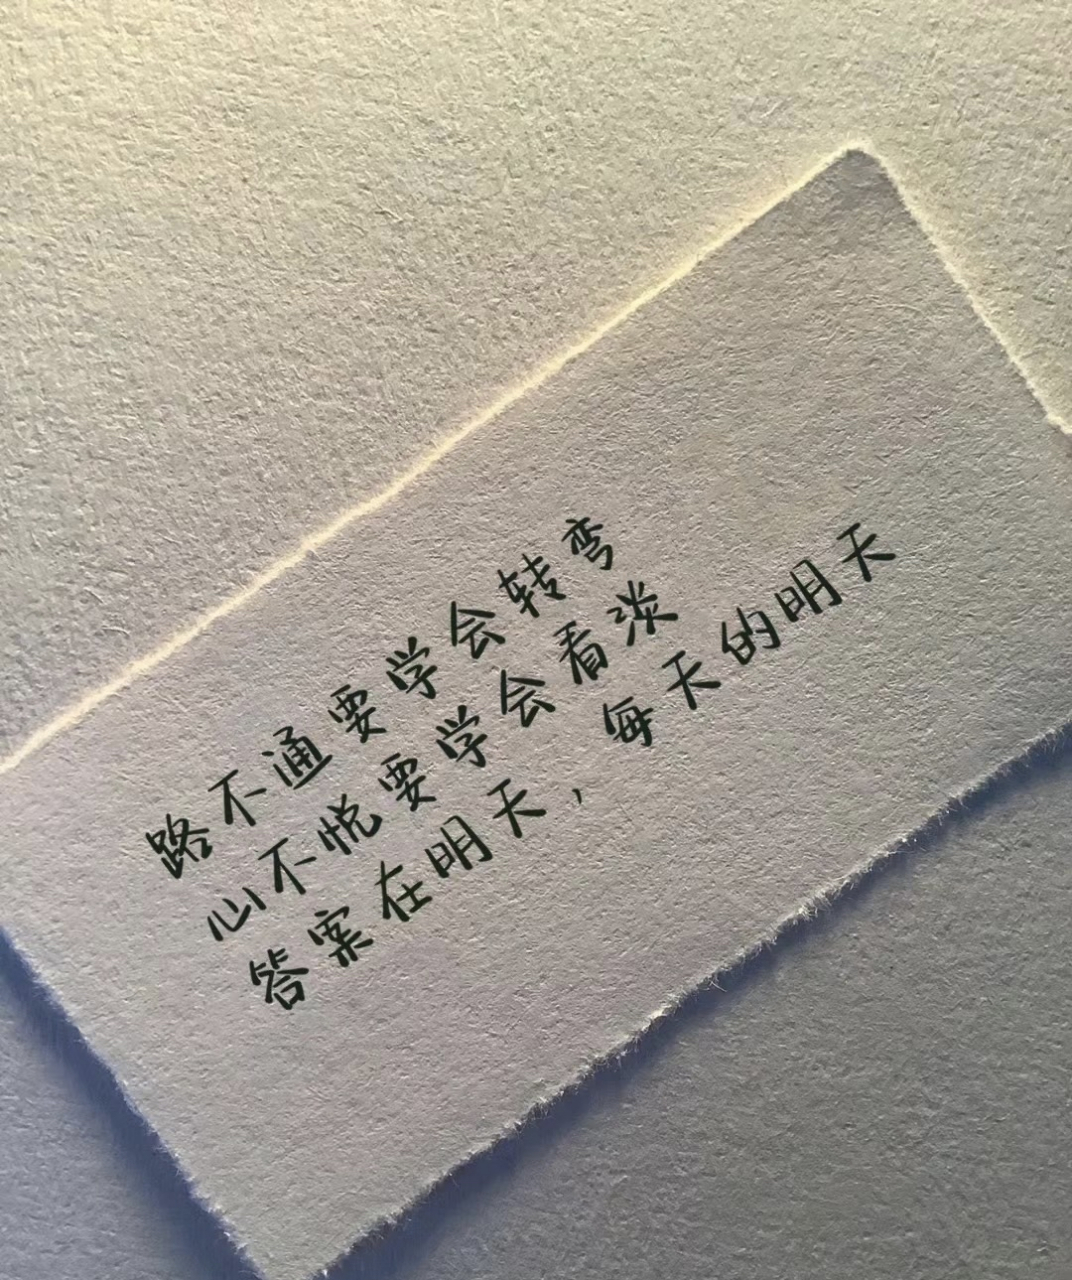 路不通要学会转弯
心不悦要学会看淡
答案在明天，每天的明天